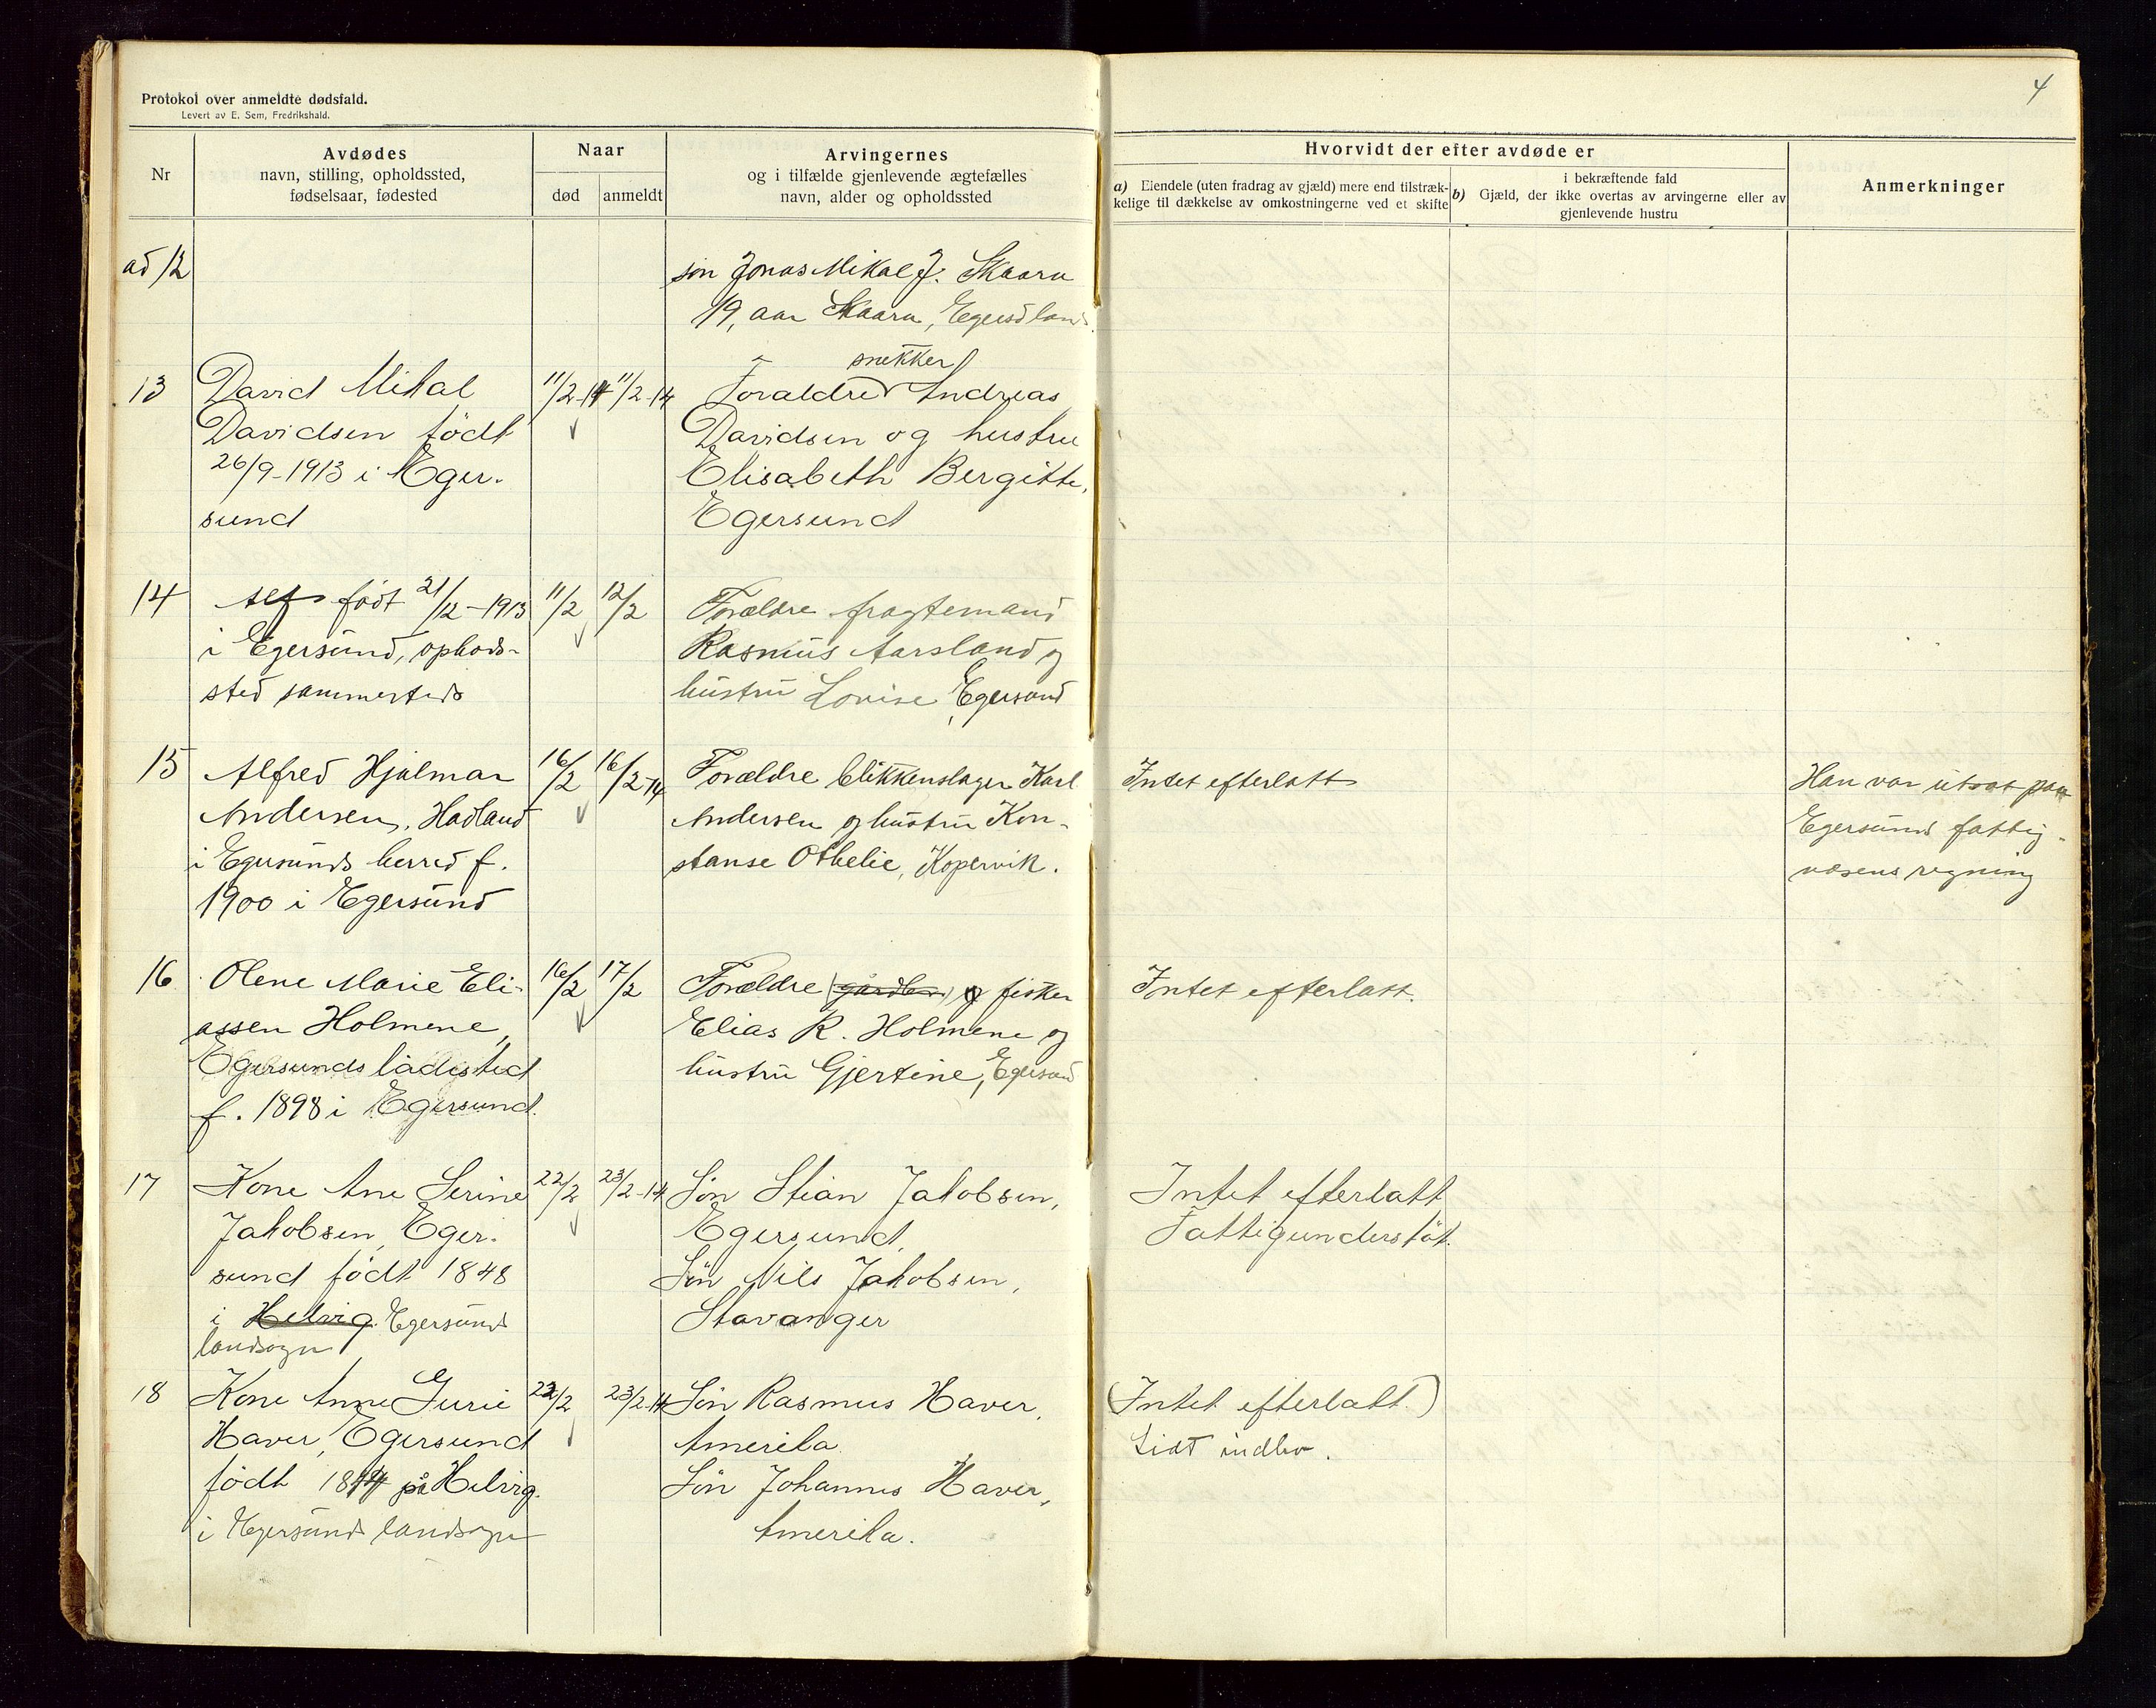 Protokol over anmeldte dødsfald.
Levert av E. Sem, Fredrikshald.
4
Nr
Avdødes
navn, stilling, opholdssted,
fødselsaar, fødested
Naar
død
anmeldt
Arvingernes
og i tilfælde gjenlevende ægtefælles
navn, alder og opholdssted
Hvorvidt der efter avdøde er
a) Eiendele (uten fradrag av gjæld) mere end tilstræk-
kelige til dækkelse av omkostningerne ved et skifte
i bekræftende fald
b) Gjæld, der ikke overtas av arvingerne eller av
gjenlevende hustru
Anmerkninger
ad 12
søn Jonas Mikal J. Skaara
19 aar Skaara, Egersd land
13
David Mikal
Davidsen født
26/9-1913 i Eger-
sund
11/2-14
11/2-14
snekker
Foraldre Andreas
Davidsen og hustru
Elisabeth Bergitte,
Egersund
14
Alf født 21/12-1913
i Egersund, opholds-
sted sammesteds
11/2
12/2
Forældre fragtemand
Rasmus Aarsland og
hustru Lovise Egersund
15
Alfred Hjalmar
Andersen, Hadland
i Egersunds herred f.
1900 i Egersund
16/2
16/2-14
Forældre blikkenslager Karl
Andersen og hustru Kon-
stanse Othelie, Kopervik.
Intet efterlatt
Han var utsat paa
Egersunds fattig-
væsens regning
16
Olene Marie Eli-
assen Holmene,
Egersunds ladested
f. 1898 i Egersund.
16/2
17/2
Forældre og fisker
Elias R. Holmene og
hustru Gjertine, Egersund
Intet efterlatt.
17
Kone Ane Serine
Jakobsen, Eger-
sund født 1848
i Helvig. Egersunds
landsogn
22/2
23/2-14
Søn Stian Jakobsen,
Egersund,
Søn Nils Jakobsen,
Stavanger
Intet efterlatt
Fattigunderstøt.
18
Kone Anne Gurie
Haver, Egersund
født 1844 på Helvig.
i Egersunds landsogn
22/2
23/2-14
Søn Rasmus Haver,
Amerika.
Søn Johannes Haver,
Amerika.
(Intet efterlatt.)
Lidt indbo.